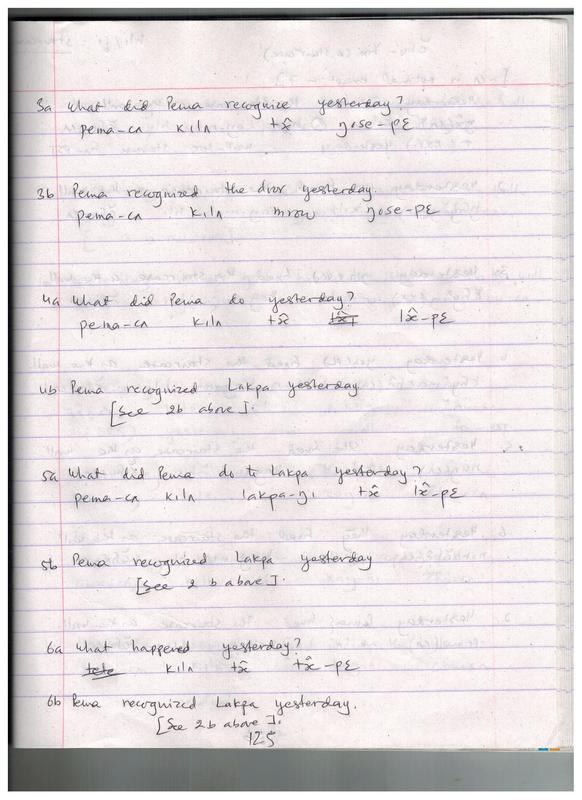 3a What did Pema recognize yesterday?
pema-cʌ kilʌ tx̂ ŋose-pɛ
3b Pema recognized the door yesterday.
pema-cʌ kilʌ mrow ŋose-pɛ
4a What did Pema do yesterday?
pema-cʌ kilʌ tx̂ lx̂-pɛ
4b Pema recognized Lakpa yesterday
[See 2b above].
5a What did Pema do to Lakpa yesterday?
pema-cʌ kilʌ lakpa-ŋi tx̂ lx̂-pɛ
5b Pema recognized Lakpa yesterday
[See 2b above].
6a What happened yesterday?
kilʌ tx̂ tx̂-pɛ
6b Pema recognized Lakpa yesterday.
[See 2b above].
125